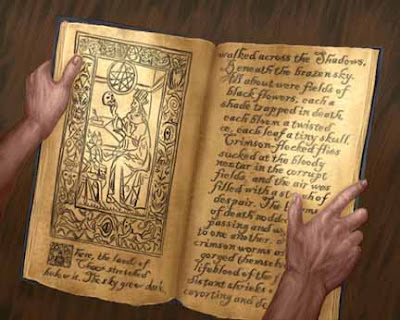 There, the land of
Chaos stretched
below it. The sky grew dark,
walked across the Shadows,
Beneath the brazen sky.
All about were fields of
black flowers, each a
shade trapped in death
each bloom a twisted
ce, each leaf a tiny skull.
Crimson-flocked flies
sucked at the bloody
nectar in the corrupt
fields, and the air was
filled with a stench of
despair. The
of death nodde
passing and w
to one another. or
crimson worms as
gorged themse
lifeblood of the
distant shrieks
cavorting and de